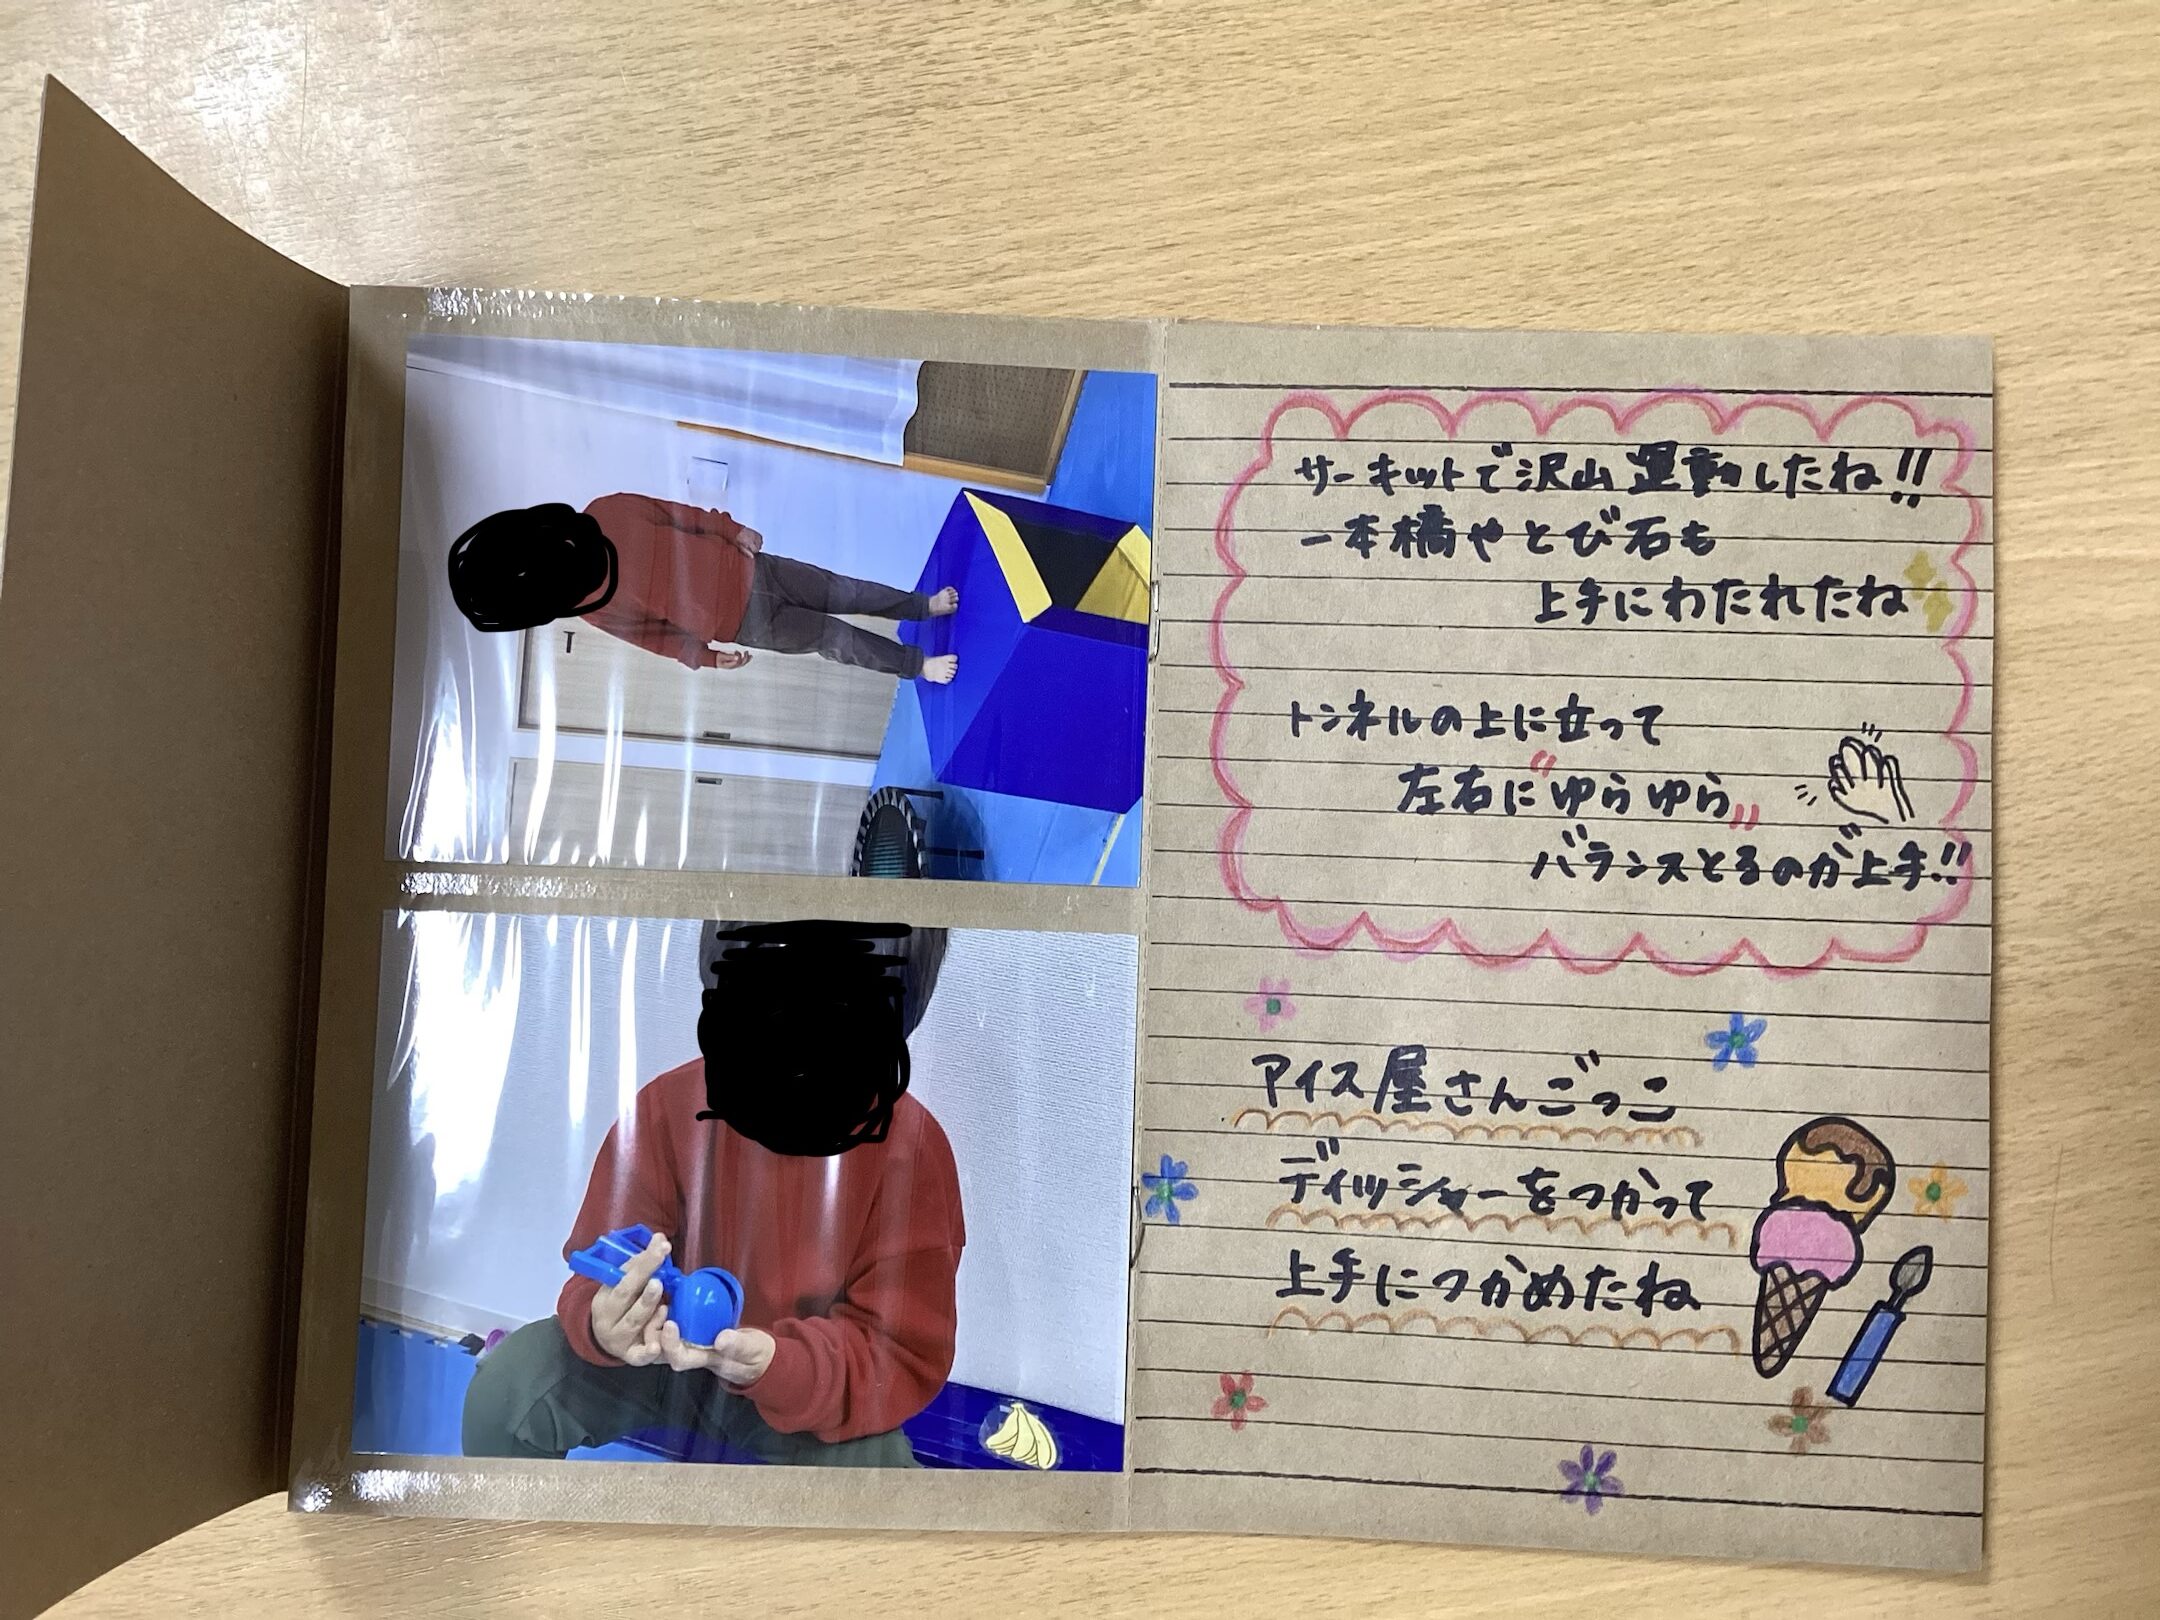 サーキットで沢山運動したね!!
一本橋やとび石も
上手にわたれたね
トンネルの上に立って
左右に"ゆらゆら"
バランスとるのが上手!!
アイス屋さんごっこ
ディッシャーをつかって
上手につかめたね